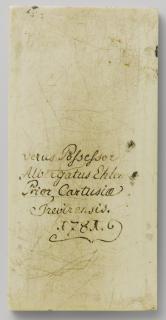 verus Possessor
Albergatus Ehlen
Prior Cartusiæ
Trevirensis.
.1781.6